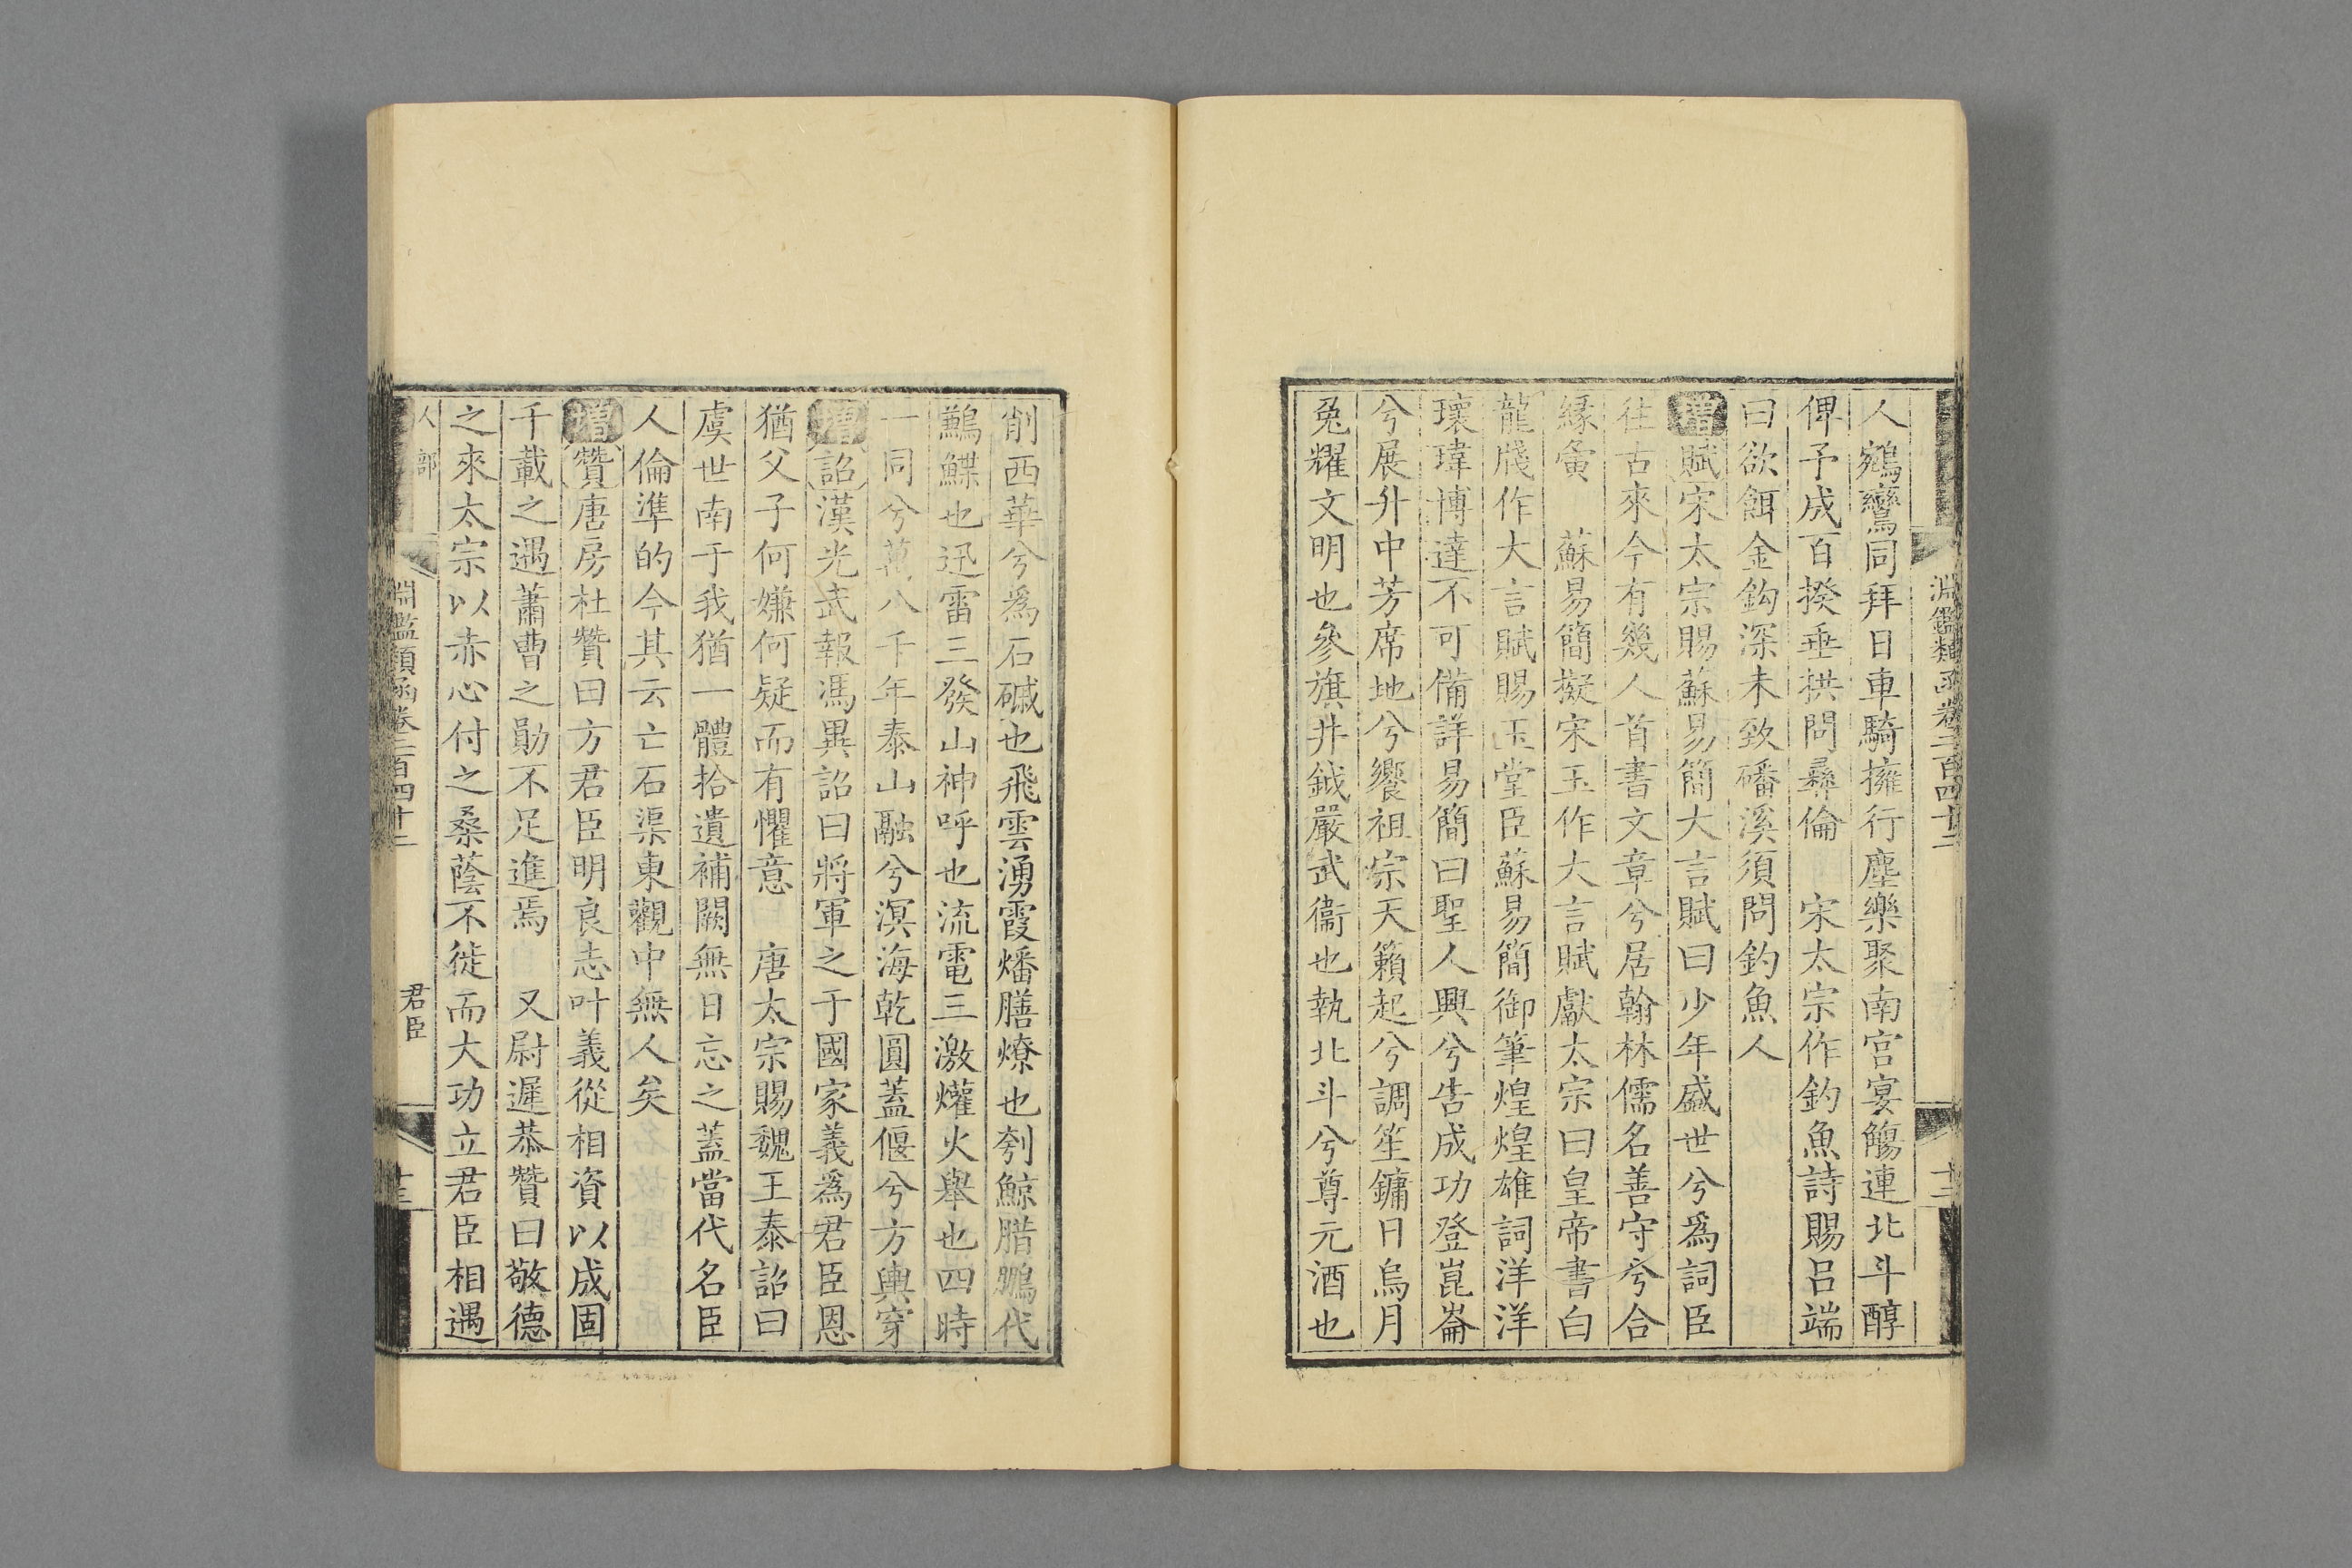 淵鑑類函卷二百四十二
十二
人鵷鸞同拜日車騎擁行塵樂聚南宮宴觴連北斗醇
俾予成百揆垂拱問彝倫　宋太宗作釣魚詩賜呂端
曰欲餌金鈎深未致磻溪須問釣魚人
增賦宋太宗賜蘇易簡大言賦曰少年盛世兮爲詞臣
往古來今有幾人首書文章兮居翰林儒名善守兮合
緣夤　蘇易簡擬宋玉作大言賦獻太宗曰皇帝書白
龍牋作大言賦賜玉堂臣蘇易簡御筆煌煌雄詞洋洋
瓌瑋博達不可備詳易簡曰聖人興兮告成功登崑崙
兮展升中芳席地兮饗祖宗天籟起兮調笙鏞日烏月
兔耀文明也參旗井鉞嚴武衞也執北斗兮尊元酒也
削西華兮爲石䃤也飛雲湧霞燔膳燎也刳鯨腊鵬代
鷫鰈也迅雷三發山神呼也流電三激爟火舉也四時
一同兮萬八千年泰山融兮溟海乾圓蓋偃兮方輿穿
增詔漢光武報馮異詔曰將軍之于國家義爲君臣恩
猶父子何嫌何疑而有懼意　唐太宗賜魏王泰詔曰
虞世南于我猶一體拾遺補闕無日忘之蓋當代名臣
人倫準的今其云亡石渠東觀中無人矣
增贊唐房杜贊曰方君臣明良志叶義從相資以成固
千載之遇蕭曹之勛不足進焉　又尉遲恭贊曰敬德
之來太宗以赤心付之桑蔭不徙而大功立君臣相遇
人部
淵鑑類函卷二百四十二
君臣
十三